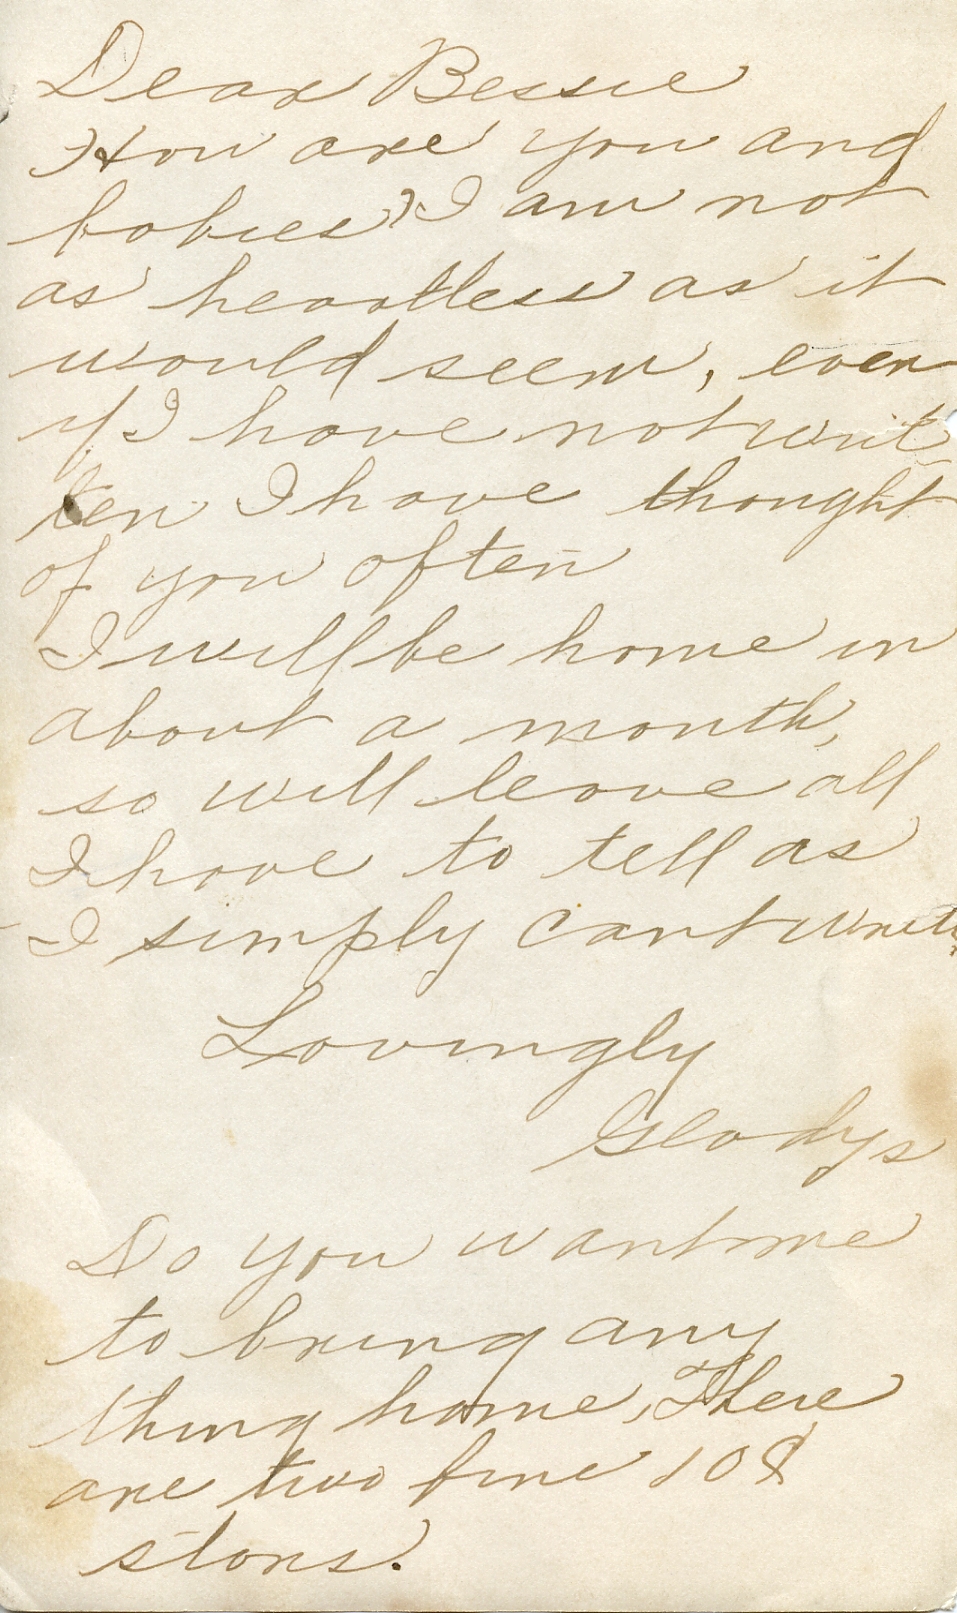 Dear Bessie
How are you and
babies? I am not
as heartless as it
would seem, even
if I have not writ-
ten I have thought
of you often
I will be home in
about a month,
so will leave all
I have to tell as
I simply cant write.
Lovingly
Gladys
Do you want me
to bring any
thing home, There
are two fine 10¢
stors.